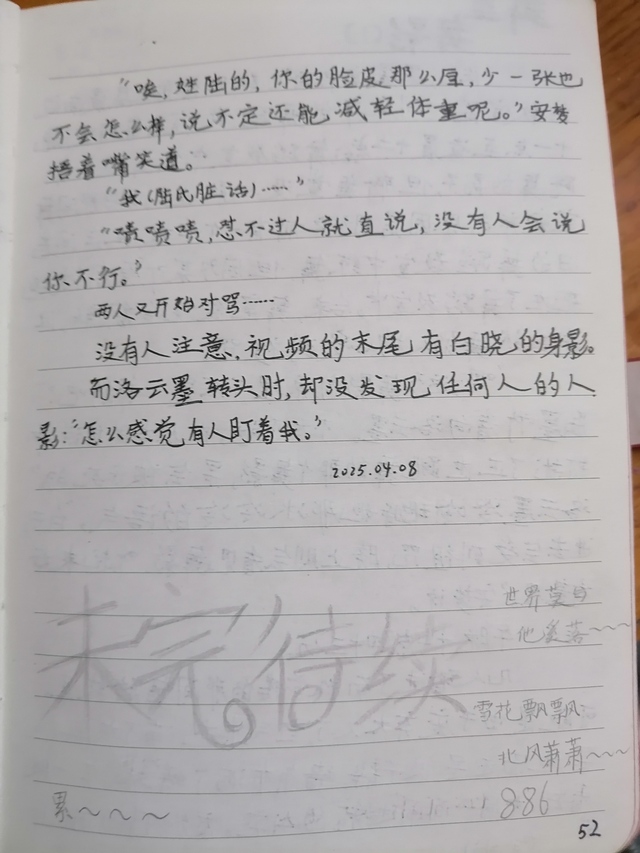 “唉，姓陆的，你的脸皮那么厚，少一张也
不会怎么样，说不定还能减轻体重呢。”安梦
捂着嘴笑道。
“我（陆氏脏话）……”
“啧啧啧，怼不过人就直说，没有人会说
你不行。”
两人又开始对骂……
没有人注意，视频的末尾有白晓的身影。
而洛云墨转头时，却没发现任何人的人
影：“怎么感觉有人盯着我。”
2025.04.08
世界莫日
他爱落～～～
未完待续
雪花飘飘
北风萧萧～～～
累～～～～
886
52